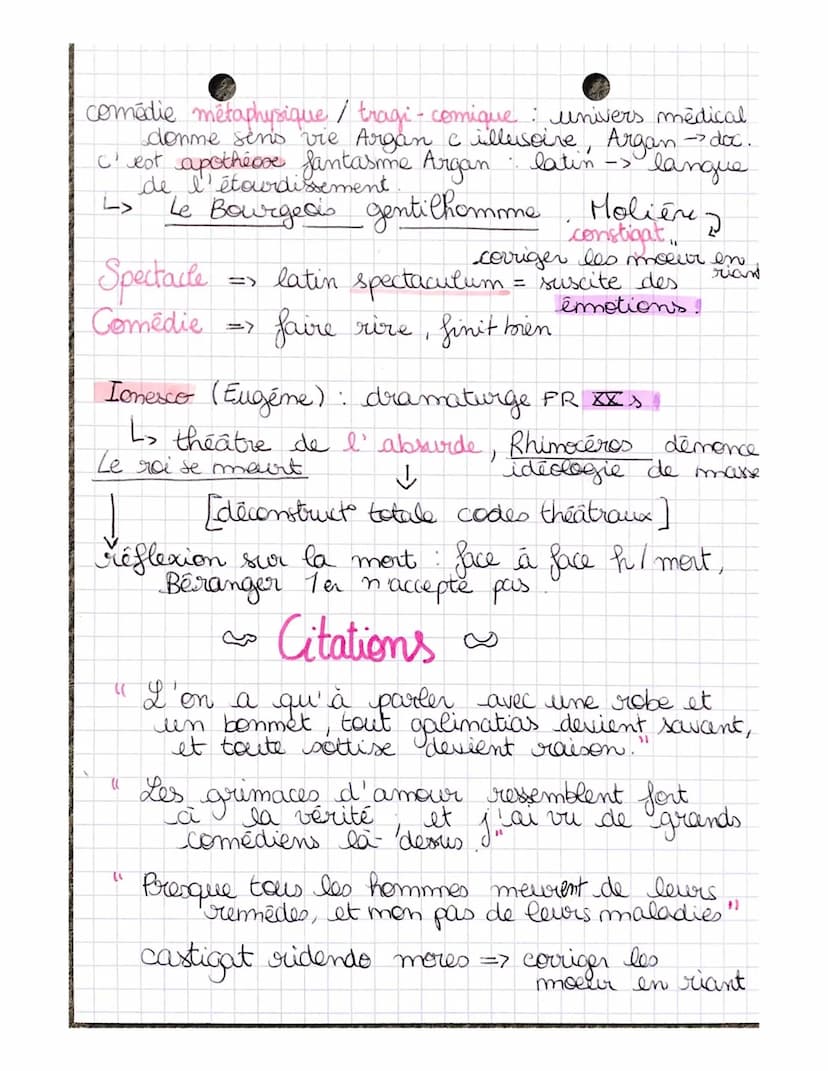 comédie métaphysique / tragi-comique : univers médical
donne sens vie Argan c illusoire, Argan → doc.
c'est apothéose fantasme Argan : latin -> langue
de l'étourdissement.
↳ Le Bourgeois gentilhomme, Molière
constigat "
corriger les moeur en riant
Spectacle => latin spectaculum = suscite des
émotions !
Comédie => faire rire, finit bien
Ionesco (Eugène) : dramaturge FR XXs
↳ théâtre de l'absurde, Rhinocéros dénonce
Le roi se meurt ↓ idéologie de masse
[déconstruct° totale codes théâtraux]
réflexion sur la mort : face à face h/mort,
Béranger 1er n'accepte pas.
Citations
"L'on a qu'à parler avec une robe et
un bonnet, tout galimatias devient savant,
et toute sottise devient raison."
"Les grimaces d'amour ressemblent fort
à la vérité ; et j'ai vu de grands
comédiens là-dessus."
"Presque tous les hommes meurent de leurs
remèdes, et non pas de leurs maladies"
castigat ridendo mores => corriger les
moeur en riant